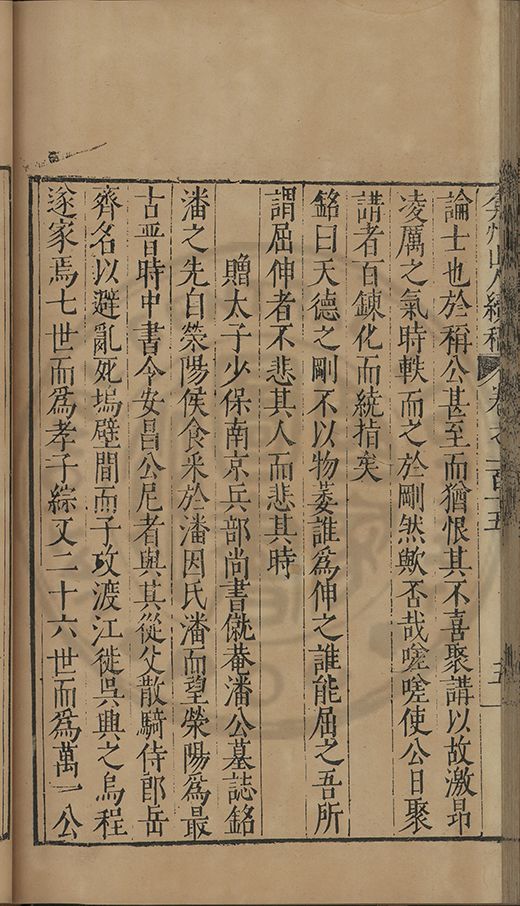 弇州山人續稿 卷之一百十五 五
論士也於稱公甚至而猶恨其不喜聚講以故激昻
凌厲之氣時軼而之於剛然歟否哉嗟嗟使公日聚
講者百鍊化而繞指矣
銘曰天德之剛不以物萎誰爲伸之誰能屈之吾所
謂屈伸者不悲其人而悲其時
贈太子少保南京兵部尚書僦菴潘公墓誌銘
潘之先自滎陽侯食采於潘因氏潘而望滎陽爲最
古晋時中書令安昌公尼者與其從父散騎侍郎岳
齊名以避亂死塢壁間而子孜渡江徙吳興之烏程
遂家焉七世而爲孝子綜又二十六世而爲萬一公